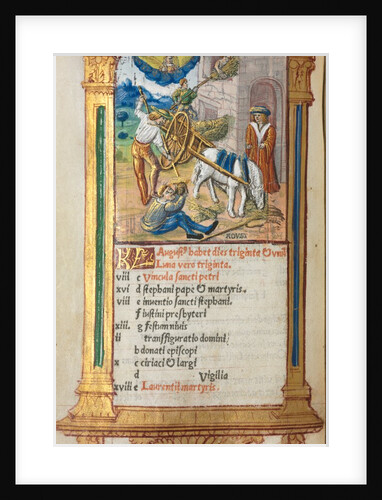 AOVST
KL Augustꝰ habet dies triginta & vnū
Luna vero triginta.
viii c Vincula sancti petri
xvi d stephani pape & martyris.
viii e inuentio sancti stephani.
f iustini presbyteri
xiii. g festum niuis
ii transfiguratio domini
b donati episcopi
x c ciriaci & largi
d Vigilia
xviii e Laurentii martyris.